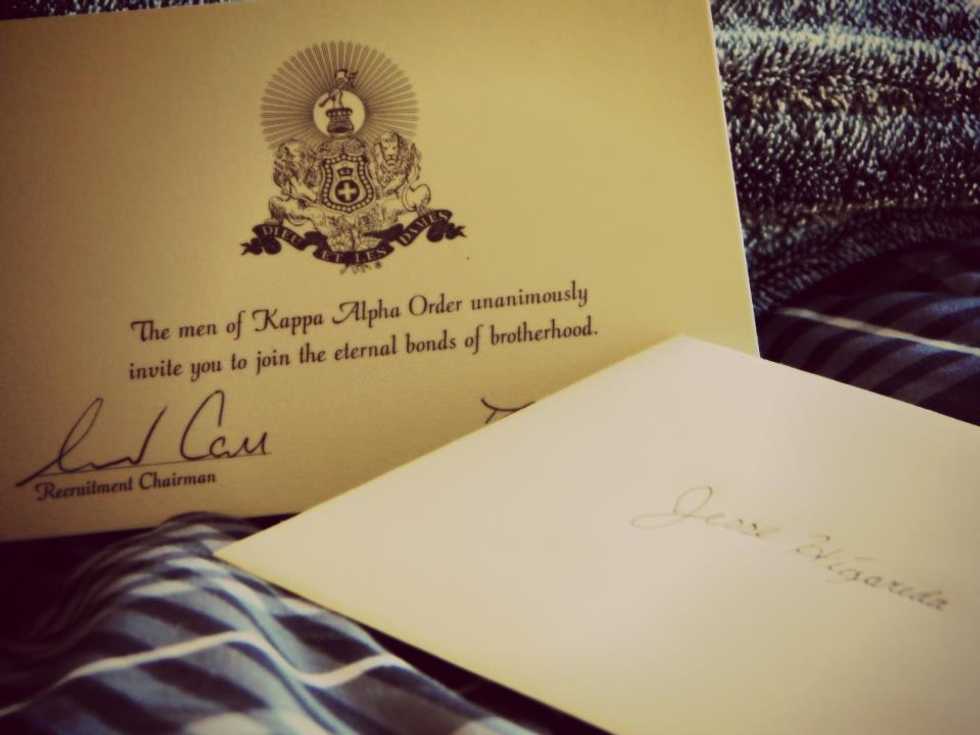 DIEU ET LES DAMES
The men of Kappa Alpha Order unanimously
invite you to join the eternal bonds of brotherhood.
Recruitment Chairman
Jesse Higareda